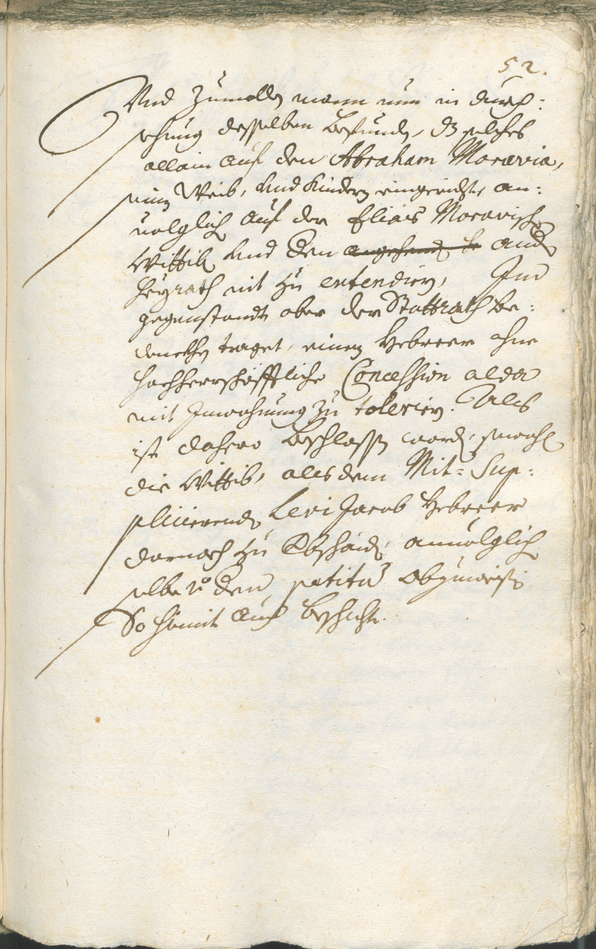 52.
Und Zumalln wann nun in durch:
sehung desselben befundn, dz solches
allain auf den Abraham Moravia,
sein Weib, und Kinder eingerichte, an:
uolglich auf der Elias Moravisch
Wittib, und den angehend be and
Heyrath nit zu extendirn, Im
gegenstandt aber der Stattrath be:
denckhn traget, einen Hebreer ohne
hochherrschäfftliche Concession alda
mit Inwohnung zu tolerirn. Als
ist dahero beschlossn wordn, sowohl
die Wittib, als dem Mit= Sup:
plicierendn Levi Jacob Hebreer
darnach zu Beschaidn, anuolglich
selbe von dem petito abzuweisn
So hiemit auch beschicht.